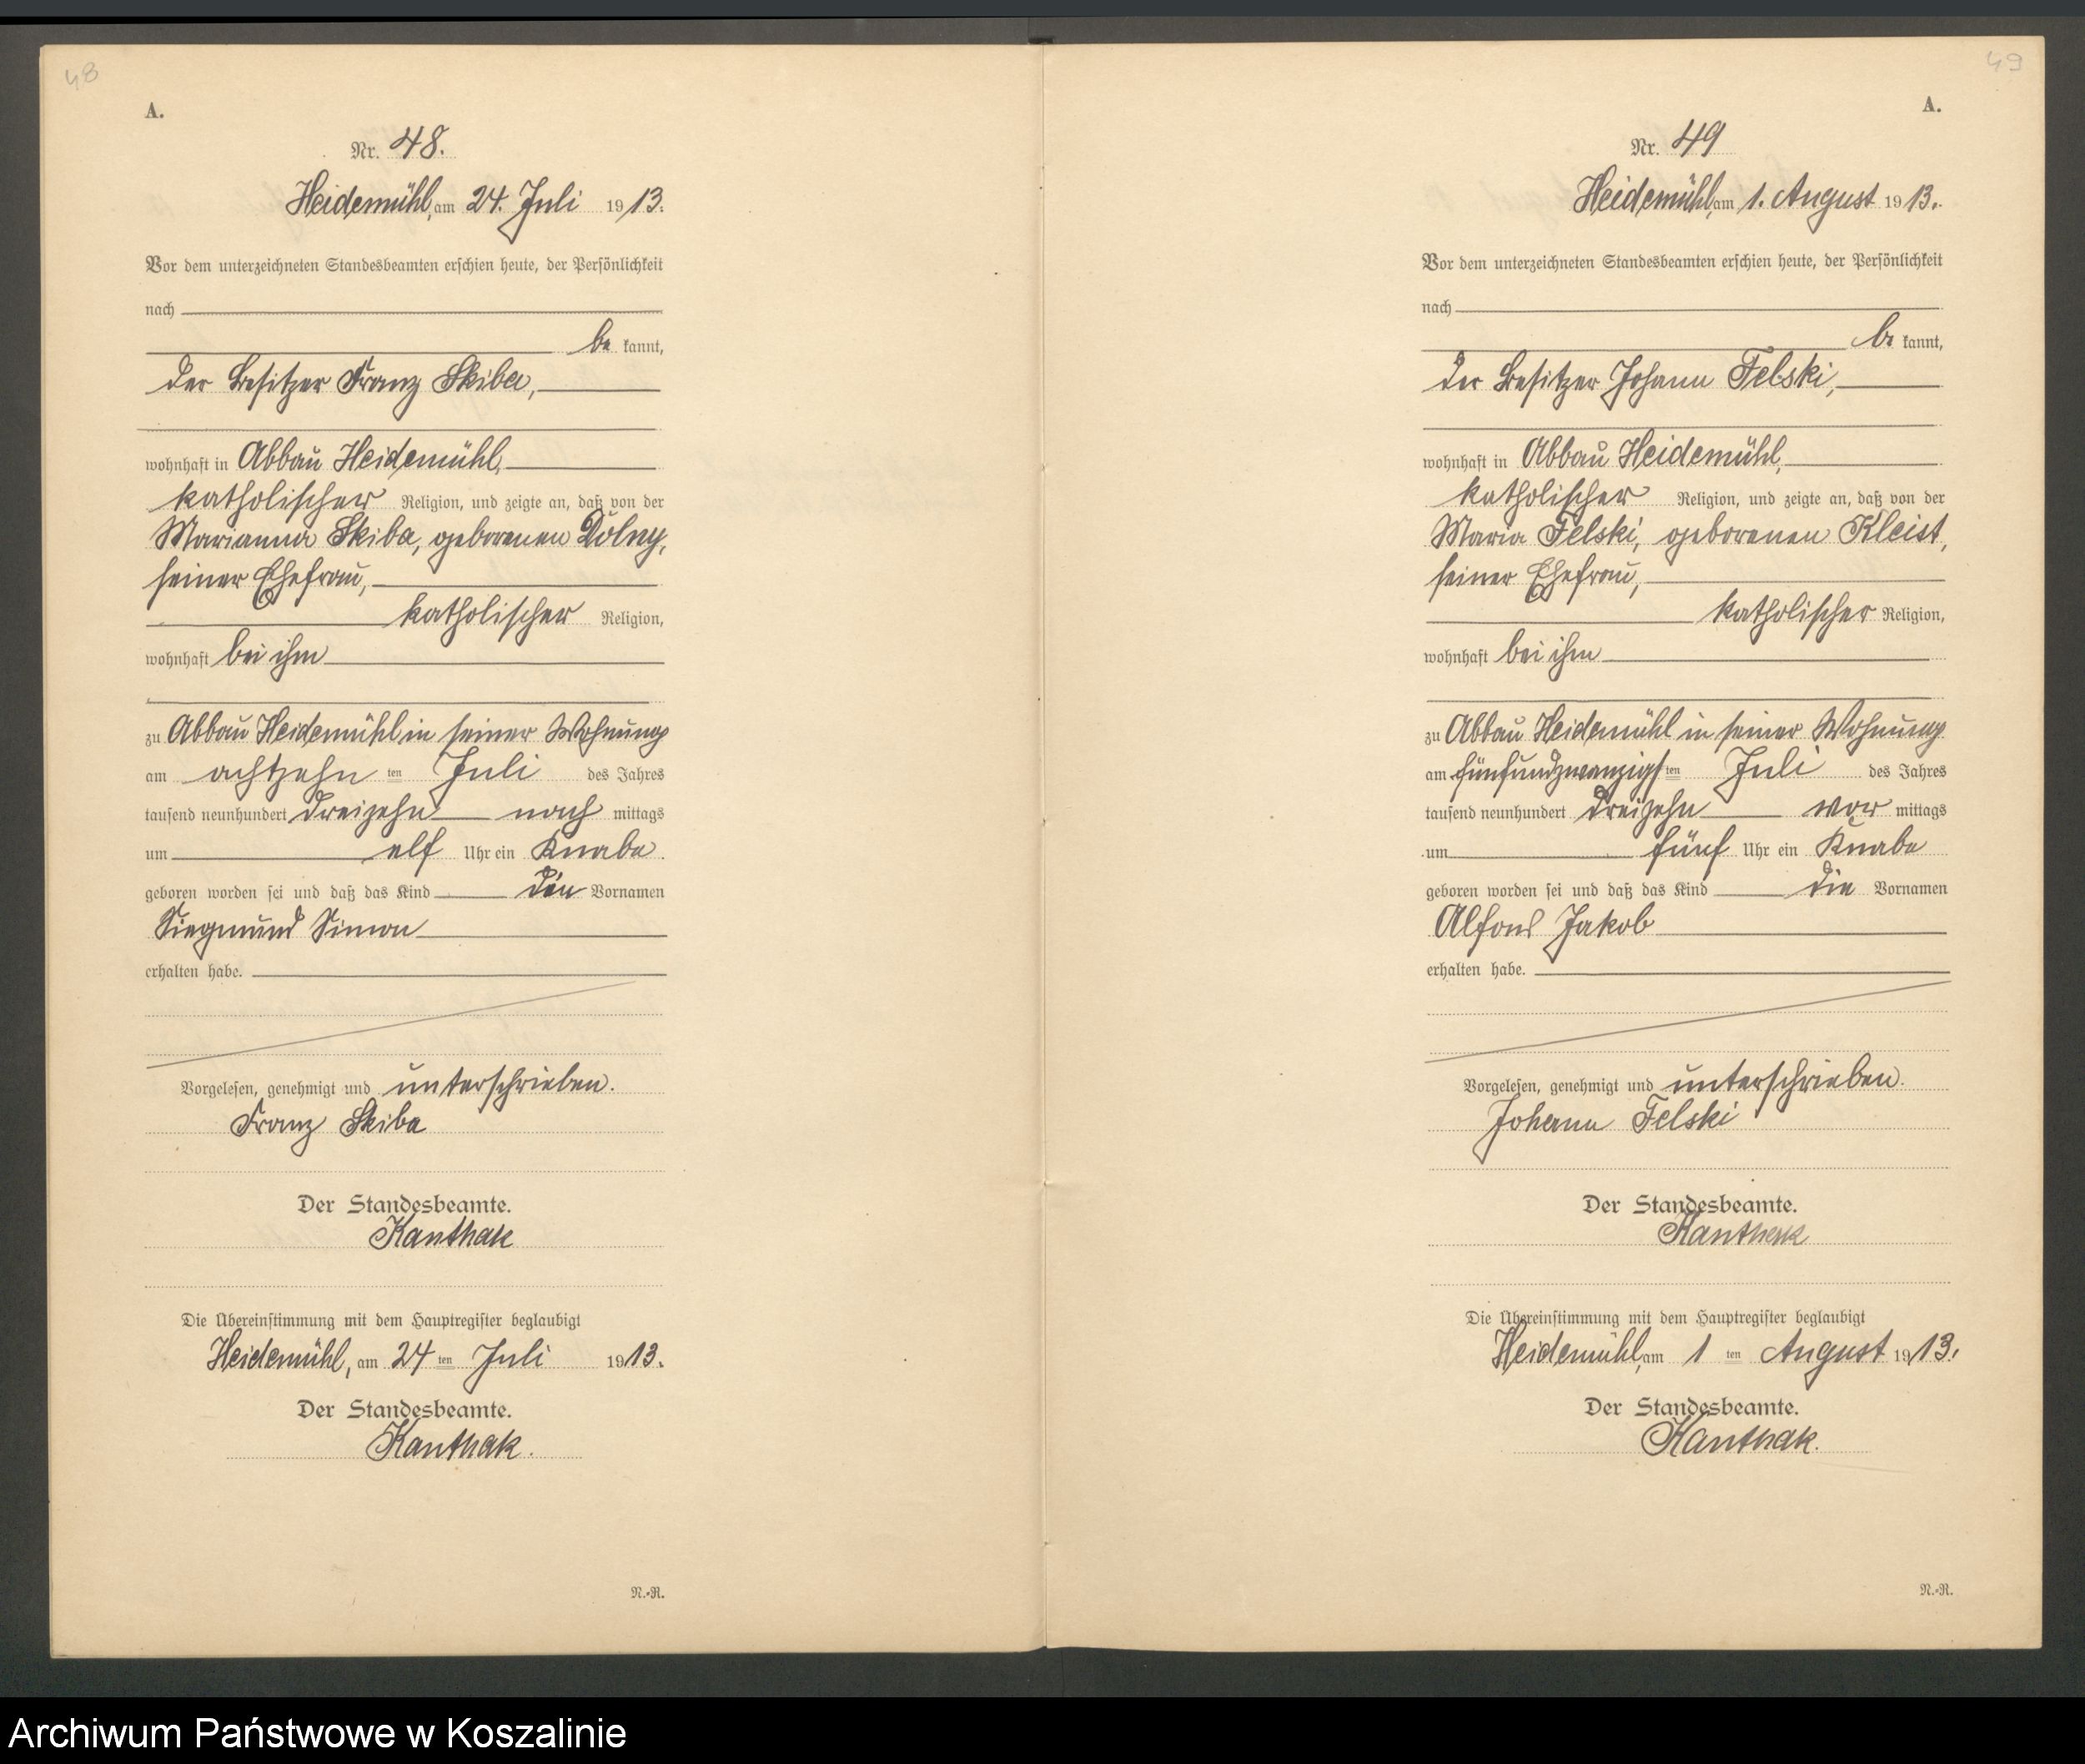 48
A.
Nr. 48.
Heidemühl, am 24. Juli 1913.
Vor dem unterzeichneten Standesbeamten erschien heute, der Persönlichkeit
nach
be kannt,
der Besitzer Franz Skiba,
wohnhaft in Abbau Heidemühl,
katholischer Religion, und zeigte an, daß von der
Marianna Skiba, geborenen Dolny,
seiner Ehefrau,
katholischer Religion,
wohnhaft bei ihm
zu Abbau Heidemühl in seiner Wohnung
am achtzehn ten Juli des Jahres
tausend neunhundert dreizehn nach mittags
um elf Uhr ein Knabe
geboren worden sei und daß das Kind die Vornamen
Siegmund Simon
erhalten habe.
Vorgelesen, genehmigt und unterschrieben.
Franz Skiba
Der Standesbeamte.
Kanthak
Die Übereinstimmung mit dem Hauptregister beglaubigt
Heidemühl, am 24 ten Juli 1913.
Der Standesbeamte.
Kanthak.
N.-R.
49
A.
Nr. 49
Heidemühl, am 1. August 1913.
Vor dem unterzeichneten Standesbeamten erschien heute, der Persönlichkeit
nach
be kannt,
der Besitzer Johann Felski,
wohnhaft in Abbau Heidemühl,
katholischer Religion, und zeigte an, daß von der
Maria Felski, geborenen Kleist,
seiner Ehefrau,
katholischer Religion,
wohnhaft bei ihm
zu Abbau Heidemühl in seiner Wohnung
am fünfundzwanzigs ten Juli des Jahres
tausend neunhundert dreizehn vor mittags
um fünf Uhr ein Knabe
geboren worden sei und daß das Kind die Vornamen
Alfons Jakob
erhalten habe.
Vorgelesen, genehmigt und unterschrieben.
Johann Felski
Der Standesbeamte.
Kanthak
Die Übereinstimmung mit dem Hauptregister beglaubigt
Heidemühl, am 1 ten August 1913.
Der Standesbeamte.
Kanthak.
N.-R.
Archiwum Państwowe w Koszalinie